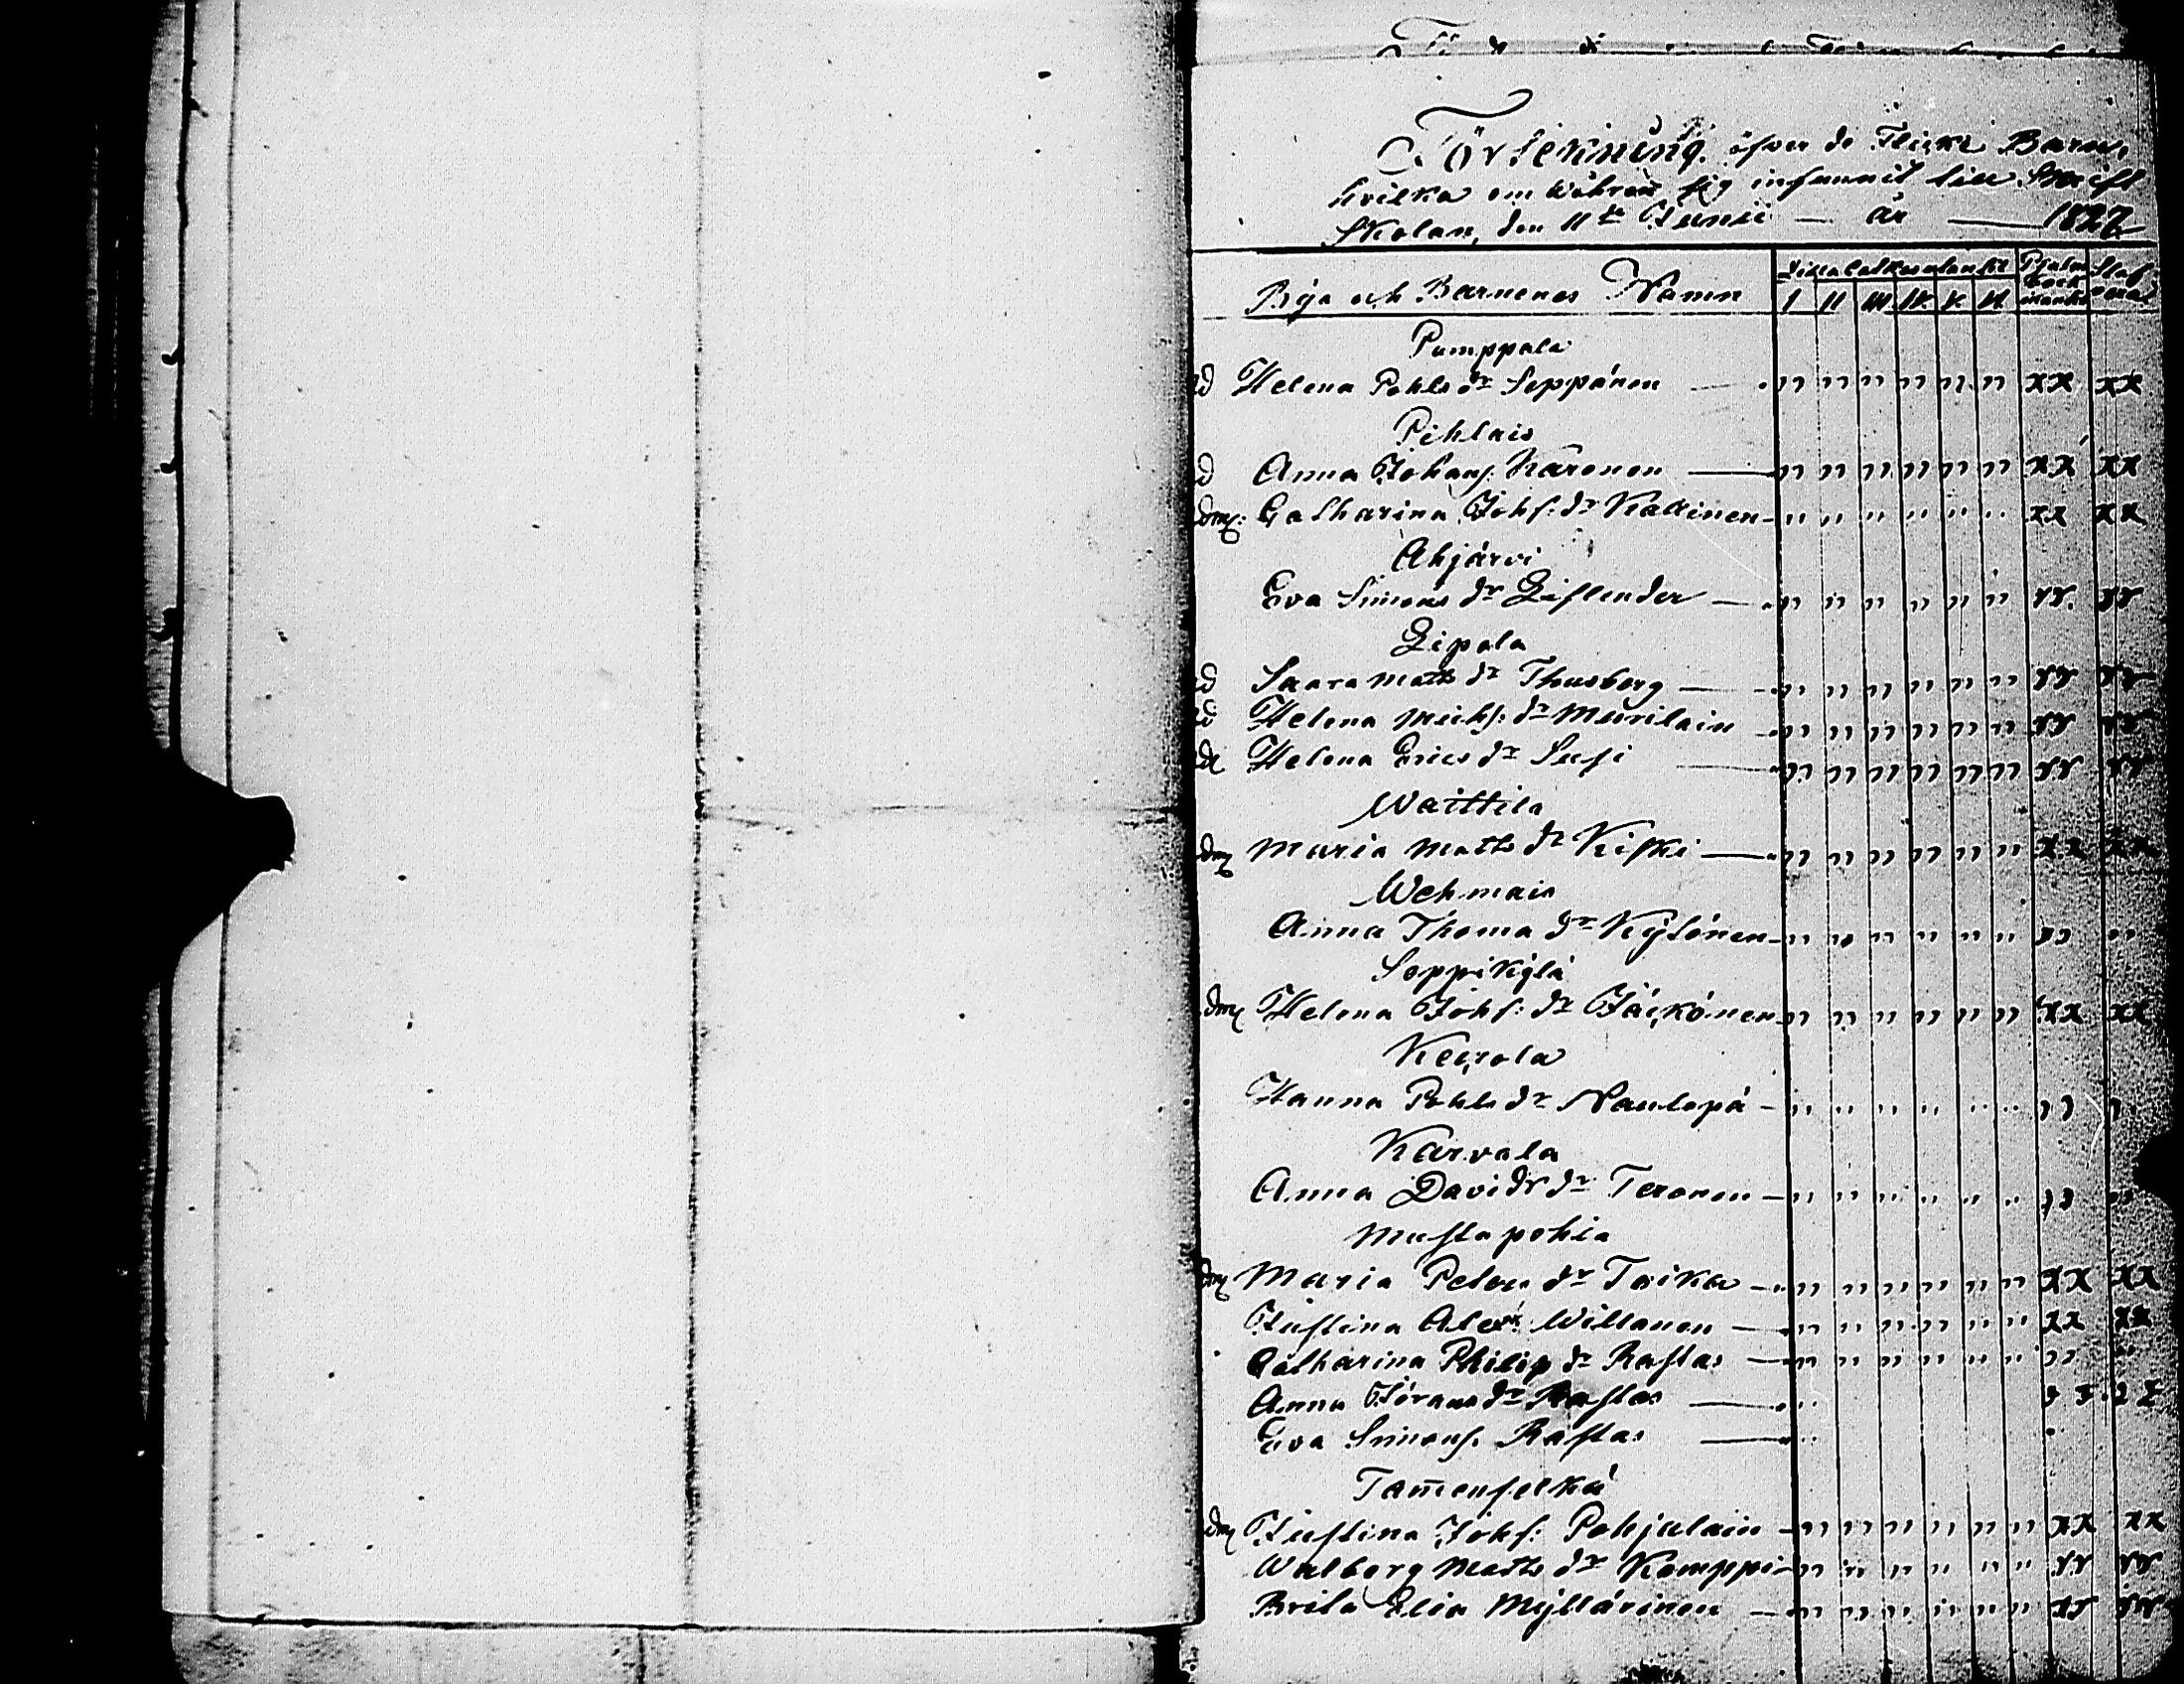 Förtekning öfver de Flicke Barn,
hvilka om Wåhren sig infunnit till Skrift
Skolan, den 11te Junii — år — 1827
Bya och Barnenes Namn I II III IV V VI Psalm bok Staf
Pumppala
Helena Pohls dr Seppänen — " " " " " " xx xx
Pihlais
Anna Johans. Käronen — " " " " " " xx xx
Catharina Johs: dr Kakinen " " " " " " xx xx
Ahjärvi
Eva Simons dr Liflender — " " " " " " rr. rr
Lipola
Saara Matts dr Thusberg — " " " " " " rr rr
Helena Mich: dr Murilain " " " " " " rr rr
Helena Erics dr Susi — " " " " " " rr rr
Waittila
Maria Matts dr Kiski — " " " " " " xx xx
Wehmais
Anna Thoma dr Kylönen " " " " " " " "
Seppikylä
Helena Johs: dr Jäskönen " " " " " " xx xx
Keirola
Hanna Pohls dr Naulapä " " " " " " " "
Karvala
Anna Davids dr Teronen " " " " " " " "
Mustapohia
Maria Peters dr Toika " " " " " " xx xx
Justina Alex: Willanen — " " " " " " xx xx
Catharina Philip dr Rastas — " " " " " " " "
Anna Görans dr Rastas —
Eva Simons. Rastas —
Tam̄enselkä
Justina Johs: Pohjalain " " " " " " xx xx
Walborg Matts dr Kamppi " " " " " " rr rr
Brita Elia Myllärinen — " " " " " "